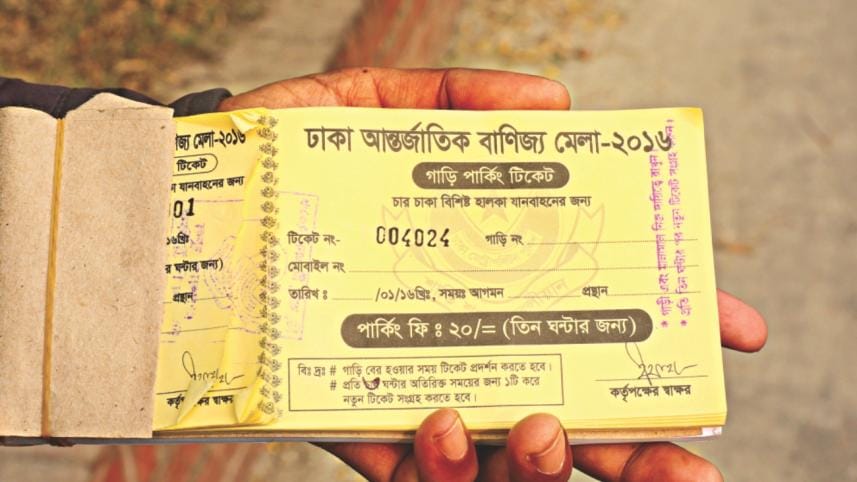 মেলা-২০১৬
টিকেট
যানবাহনের জন্য
01
১৬খ্রিঃ
ঘন্টার জন্য)
প্রস্থান
কর্তৃপক্ষের স্বাক্ষর
ঢাকা আন্তর্জাতিক বাণিজ্য মেলা-২০১৬
গাড়ি পার্কিং টিকেট
চার চাকা বিশিষ্ট হালকা যানবাহনের জন্য
টিকেট নং- 004024 গাড়ি নং
মোবাইল নং
তারিখ ঃ /০১/১৬খ্রিঃ, সময়ঃ আগমন প্রস্থান
পার্কিং ফি ঃ ২০/= (তিন ঘন্টার জন্য)
বিঃ দ্রঃ # গাড়ি বের হওয়ার সময় টিকেট প্রদর্শন করতে হবে।
# প্রতি ঘন্টার অতিরিক্ত সময়ের জন্য ১টি করে
নতুন টিকেট সংগ্রহ করতে হবে।
কর্তৃপক্ষের স্বাক্ষর
* গাড়ী এবং মালামাল নিজ দায়িত্বে রাখুন
* প্রতি তিন ঘন্টার পর নতুন টিকেট সংগ্রহ করুন।